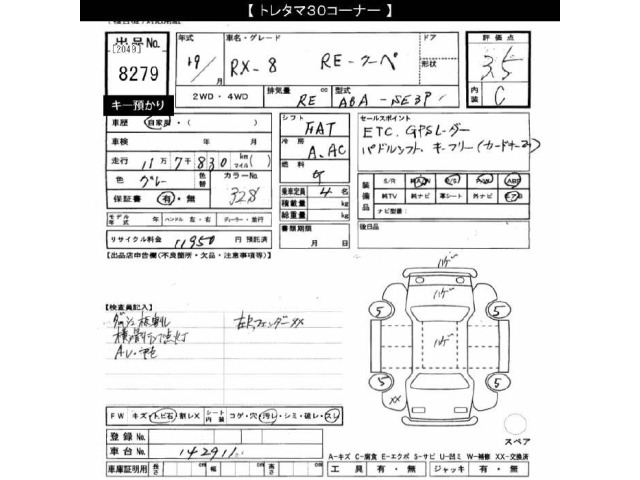 【 トレタマ30コーナー 】
出品No.
[2049]
8279
キー預かり
年式
19/
月
車名・グレード
RX-8
RE-クーペ
ドア
形状
評価点
3.5
内装
C
2WD・4WD
排気量
cc
RE
型式
ABA-SE3P
車歴
自家用・( )
車検 年 月
走行
11万7千830
km
マイル
( )
色
グレー
色替
カラーNo.
32S
保証書
有・無
シフト
FAT
冷房
A.AC
燃料
G
乗車定員 4 名
積載量 kg
総重量 kg
セールスポイント
ETC. GPSレーダー
パドルシフト、キーフリー(カードキー
装備品
S/R
純A/W
P/S
P/W
純TV
純ナビ
革シート
外TV
ナビ型番:
モデル年式 年
ハンドル 左・右
ディーラー・並行
リサイクル料金
11950
円 預託済
書類期限
月 日
後日品
【出品店申告欄(不良箇所・欠品・注意事項等)】
【検査員記入】
左Fフェンダー XX
ハゲ
ハゲ
ハゲ
5
5
5
5
XX
FW
キズ・トビ石・割レX
シート
内装
コゲ・穴・汚レ・シミ・破レ・スレ
登録No.
車台No.
142911
スペア
A-キズ C-腐食 E-エクボ S-サビ U-凹ミ W-補修 XX-交換済
車庫証明用
長さ cm
幅 cm
高さ cm
工具 有・無
ジャッキ 有・無